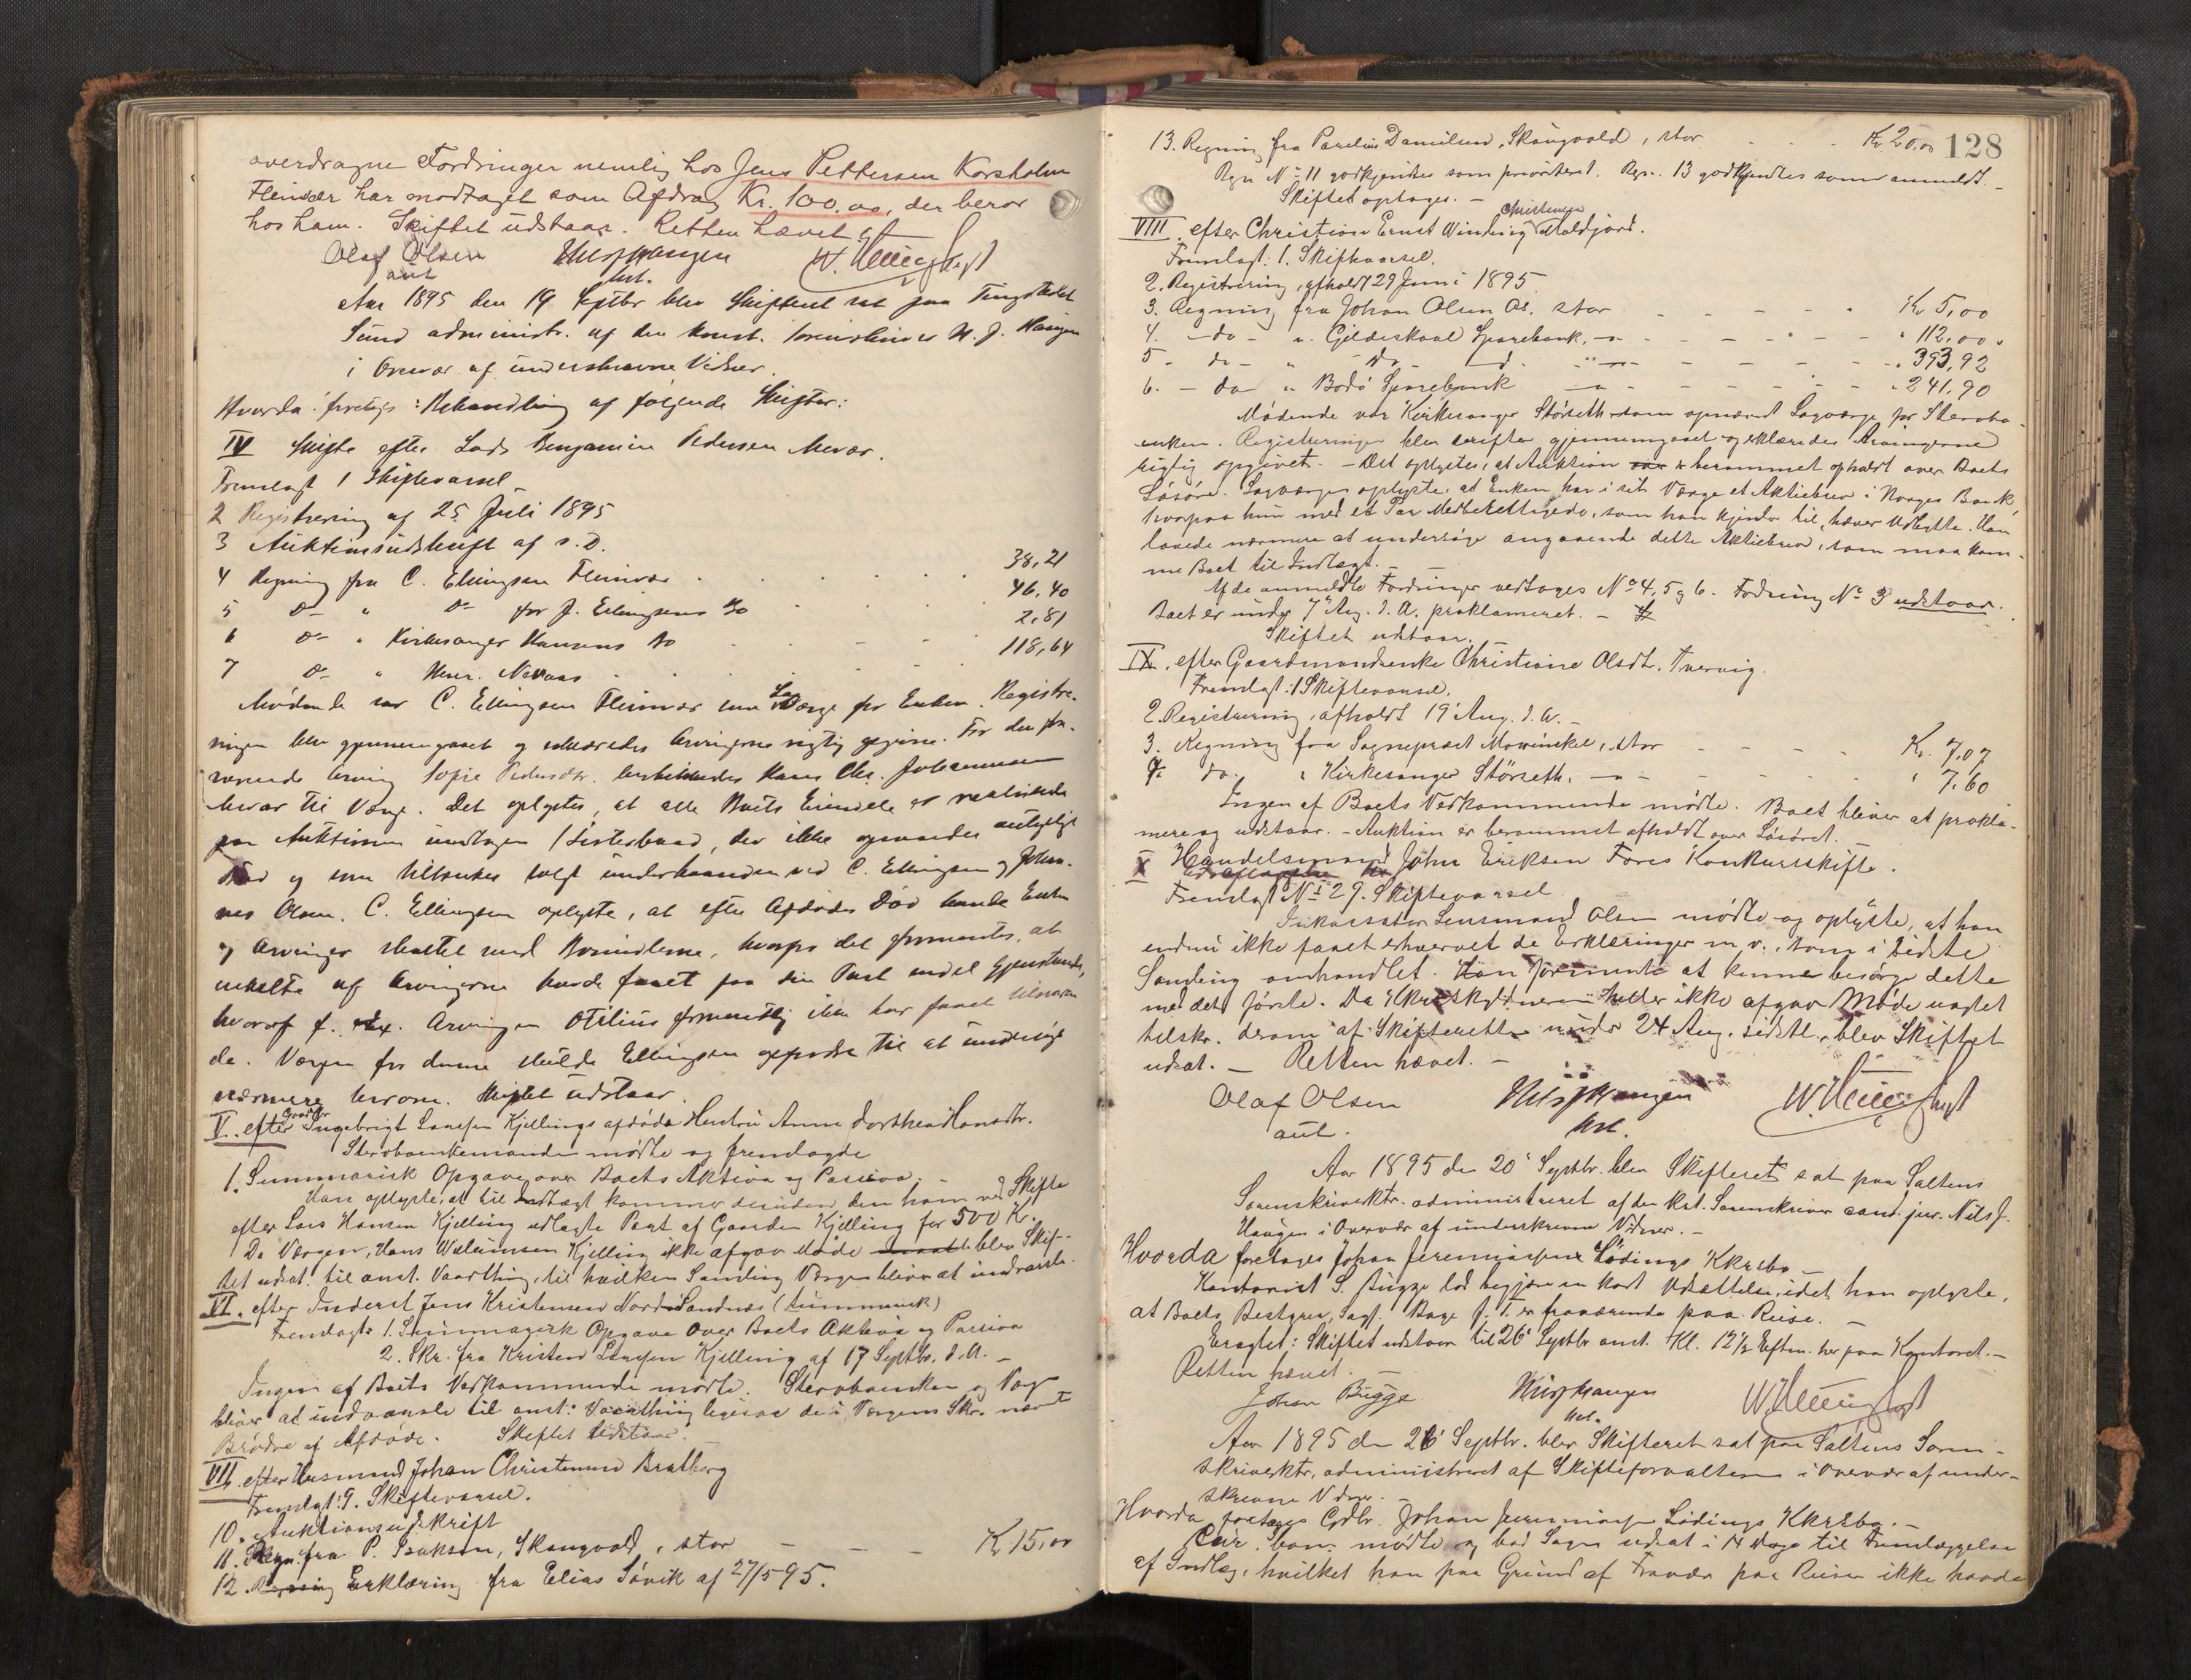 overdragne Fordringer nemlig hos Jens Pettersen Korsholm
Fleinvær har modtaget som Afdrag Kr. 100,00, der beror
hos ham. Skiftet udstaar. Retten hævet
Olaf Olsen
aut
Aar 1895 den 19 Septbr blev Skifteret sat paa Tingstedet
Sund administr. af den konst. Sorenskriver N. J. Haugen
i Overvær af underskrevne Vidner.
Hvorda foretoges: Behandling af følgende Skifter:
IV Skifte efter Lods Benjamin Pedersen
Fremlagt 1 Skiftevarsel
2 Registrering af 25 Juli 1895
3 Auktionsudskrift af s. D.
4 Regning fra C. Ellingsen Fleinvær . . . 38,21
5 Do " Do for J. Ellingsens Bo . . . 46,40
6 Do " Kirkesanger Hansens Bo . . . 2,81
7 Do " Henr. . . . 118,64
Mødende var C. Ellingsen Fleinvær som Lavværge for Enken. Registre-
ringen blev gjennemgaaet og erklæredes Arvingerne rigtig opgivne. For den fra-
værende Arving Sofie Pedersdtr. beskikkedes Hans Chr. Johannesen
til Værge. Det oplystes, at alle Boets Eiendele er realiserede
paa Auktionen undtagen 1 , der ikke opnaaedes antageligt
Bud og som tilkendes solgt underhaanden ved C. Ellingsen og Johan-
nes Olsen. C. Ellingsen oplyste, at efter Afdødes Død havde Enken
og Arvinger skaltet med Boeiendelene, hvorfor det formentes, at
enkelte af Arvingerne havde faaet paa sin Part endel Gjenstande,
hvoraf f. Ex. Arvingen Otilius formentlig ikke har faaet tilsvaren
de. Værgen for denne skulde Ellingsen opfordre til at undersøge
nærmere herom. Skiftet udstaar.
V. efter Gaardbr Ingebrigt Larsen Kjellings afdøde Hustru Anne Dorthea Hansdtr.
Stervboenkemanden mødte og fremlagde
1. Summarisk Opgave over Boets Aktiva og Passiva. -
Han oplyste, at til Indtægt kommer desuden den ham ved Skifte
efter Lars Hansen Kjelling udlagte Part af Gaarden Kjelling for 500 Kr.
Da Værgen, Hans Willumsen Kjelling ikke afgav Møde blev Skif-
tet udsat til anst. Vaarthing, til hvilken Samling Værgen bliver at indvarsle.
VI. efter Inderst Jens Kristensen Nord-Sandnæs (summarisk)
Fremlagt 1. Summarisk Opgave over Boets Aktiva og Passiva
2. Skr. fra Kristen Larsen Kjelling af 17 Septbr. d. A. -
Ingen af Boets Vedkommende mødte. Stervboenken og Værge
bliver at indvarsle til anst. Vaarthing ligesaa de i Værgens Skr. nævnte
Brødre af Afdøde. Skiftet udstaar.
VII. efter Husmand Johan Christensen Bratberg
Fremlagt: 9. Skiftevarsel.
10. Auktionsudskrift
11. Regn. fra P. Isaksen, Skaugvold, stor - - - Kr 15,00
12. Erklæring fra Elias Søvik af 27/5 95.
128
13. Regning fra Danilsen, Skaugvold, stor . . . Kr 20,00
Regn No 11 godkjendtes som prioriteret. Regn. 13 godkjendtes som anmeldt. -
Skiftet optages. -
VIII. efter Christian Ernst Winding Christensen
Fremlagt: 1. Skiftevarsel.
2. Registrering, afholdt 29 Juni 1895
3. Regning fra Johan Olsen Øl. stor - - - Kr 5,00
4. - do - " Gildeskaal Sparebank, - - - " 112,00
5 - do - " do - - - " 393,92
6. - do " Bodø Sparebank - - - " 241,90
Mødende var Kirkesanger Størseth som opnævnt Lagværge for Stervbo-
enken. Registreringen blev derefter gjennemgaaet og erklæredes Arvingerne
rigtig opgivet. - Det oplystes, at Auktion er berammet afholdt over Boets
Løsøre. Lagværgen oplyste, at Enken har i sit Værge et Aktiebrev i Norges Bank,
hvorpaa hun med et Par Medberettigede, som han kjender til, hæver Udbytte. Han
lovede nærmere at undersøge angaaende dette Aktiebrev, som maa kom-
me Boet til Indtægt. -
Af de anmeldte Fordringer vedtoges No 4, 5 og 6. Fodring No 3 udstaar.
Boet er under 7 Aug. d. A. proklameret. -
Skiftet udstaar.
IX. efter Gaardmandsenke Christiane Olsdt. Tvervig.
Fremlagt: 1 Skiftevarsel.
2. Registrering, afholdt 19 Aug. d. A. -
3. Regning fra Sognepræst Mowinckel, stor - - - Kr. 7,07
4. do. " Kirkesanger Størseth. - - - " 7,60
Ingen af Boets Vedkommende mødte. Boet bliver at prokla-
mere og udstaar. - Auktion er berammet afholdt over Løsøret.
X Handelsmand John Eriksen Fores Konkursskifte.
Fremlagt No 29. Skiftevarsel
Inkassator Lensmand Olsen mødte og oplyste, at han
endnu ikke faaet erhvervet de Erklæringer m. v., som i sidste
Samling omhandlet. Han formente at kunne besørge dette
med det første. Da Kkrsskyldneren heller ikke afgav Møde uagtet
tilskr. derom af Skifteretten under 24 Aug. sidstl., blev Skiftet
udsat. - Retten hævet. -
Olaf Olsen
aut.
kst.
Aar 1895 den 20 Septbr. blev Skifteret sat paa Saltens
Sorenskriverktr. administreret af den kst. Sorenskriver cand. jur. Nils J.
Haugen i Overvær af underskrevne Vidner. -
Hvorda foretages Johan Jeremiassens Lødings Kkrsbo -
Kontorist S. Bugge lod begjære en kort Udsættelse, idet han oplyste,
at Boets Bestyrer, Sagf. Bage f. T. er fraværende paa Reise. -
Eragtet: Skiftet udstaar til 26 Septbr anst. Kl. 12½ Eftm. her paa Kontoret. -
Retten hævet. -
Johan Bugge
kst.
Aar 1895 den 26 Septbr. blev Skifteret sat paa Saltens Soren-
skriverktr, administreret af Skifteforvalteren i Overvær af under-
skrevne Vidner. -
Hvorda foretages Gdbr. Johan Jeremiassen Lødings Kkrsbo. -
Cur. bon. mødte og bad Sagen udsat i 14 Dage til Fremlæggelse
af Indlæg, hvilket han paa Grund af Fravær paa Reiser ikke havde